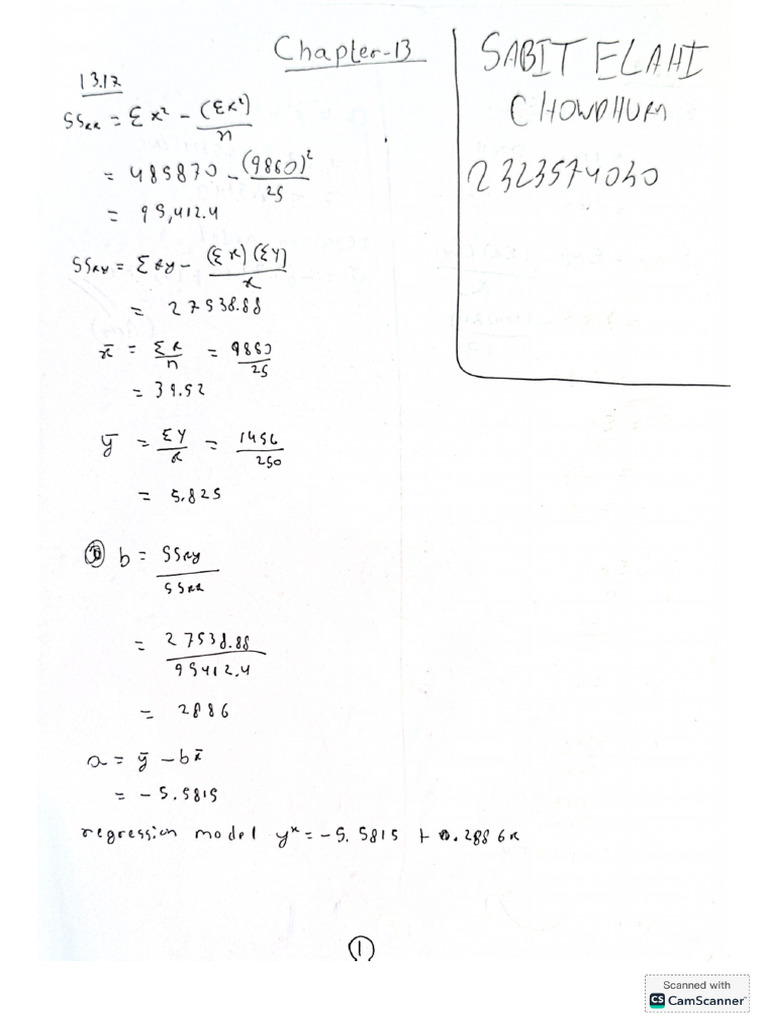 Chapter-13
SABIT ELAHI
CHOWDHURY
2323574030
13.17
SSxx = Σx² - (Σx²)/n
= 485870 - (9860)²/25
= 95,412.4
SSxy = Σxy - (Σx)(Σy)/x
= 27538.88
x̄ = Σx/n = 9860/25
= 39.52
ȳ = Σy/x = 1456/250
= 5.825
b = SSxy/SSxx
= 27538.88/95412.4
= 2886
a = ȳ - bx̄
= -5.5815
regression model y^x = -5.5815 + 0.2886x
1
Scanned with
CS CamScanner